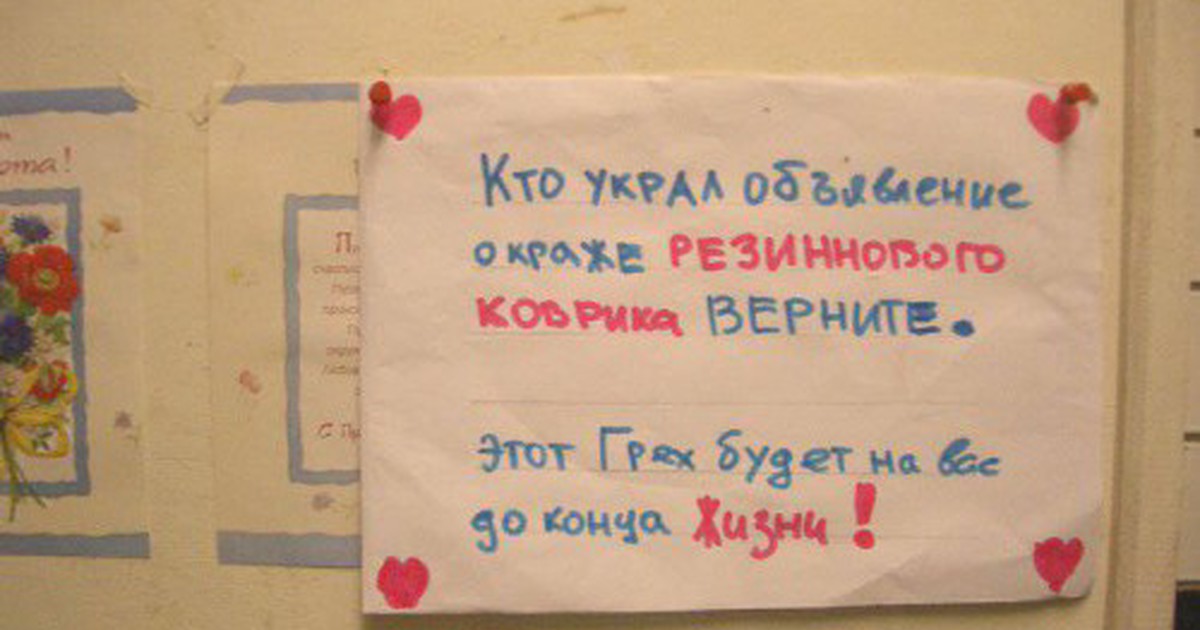 Кто украл объявление
о краже РЕЗИННОВОГО
КОВРика ВЕРНИТЕ.
этот Грех будет на вас
до конца Жизни!